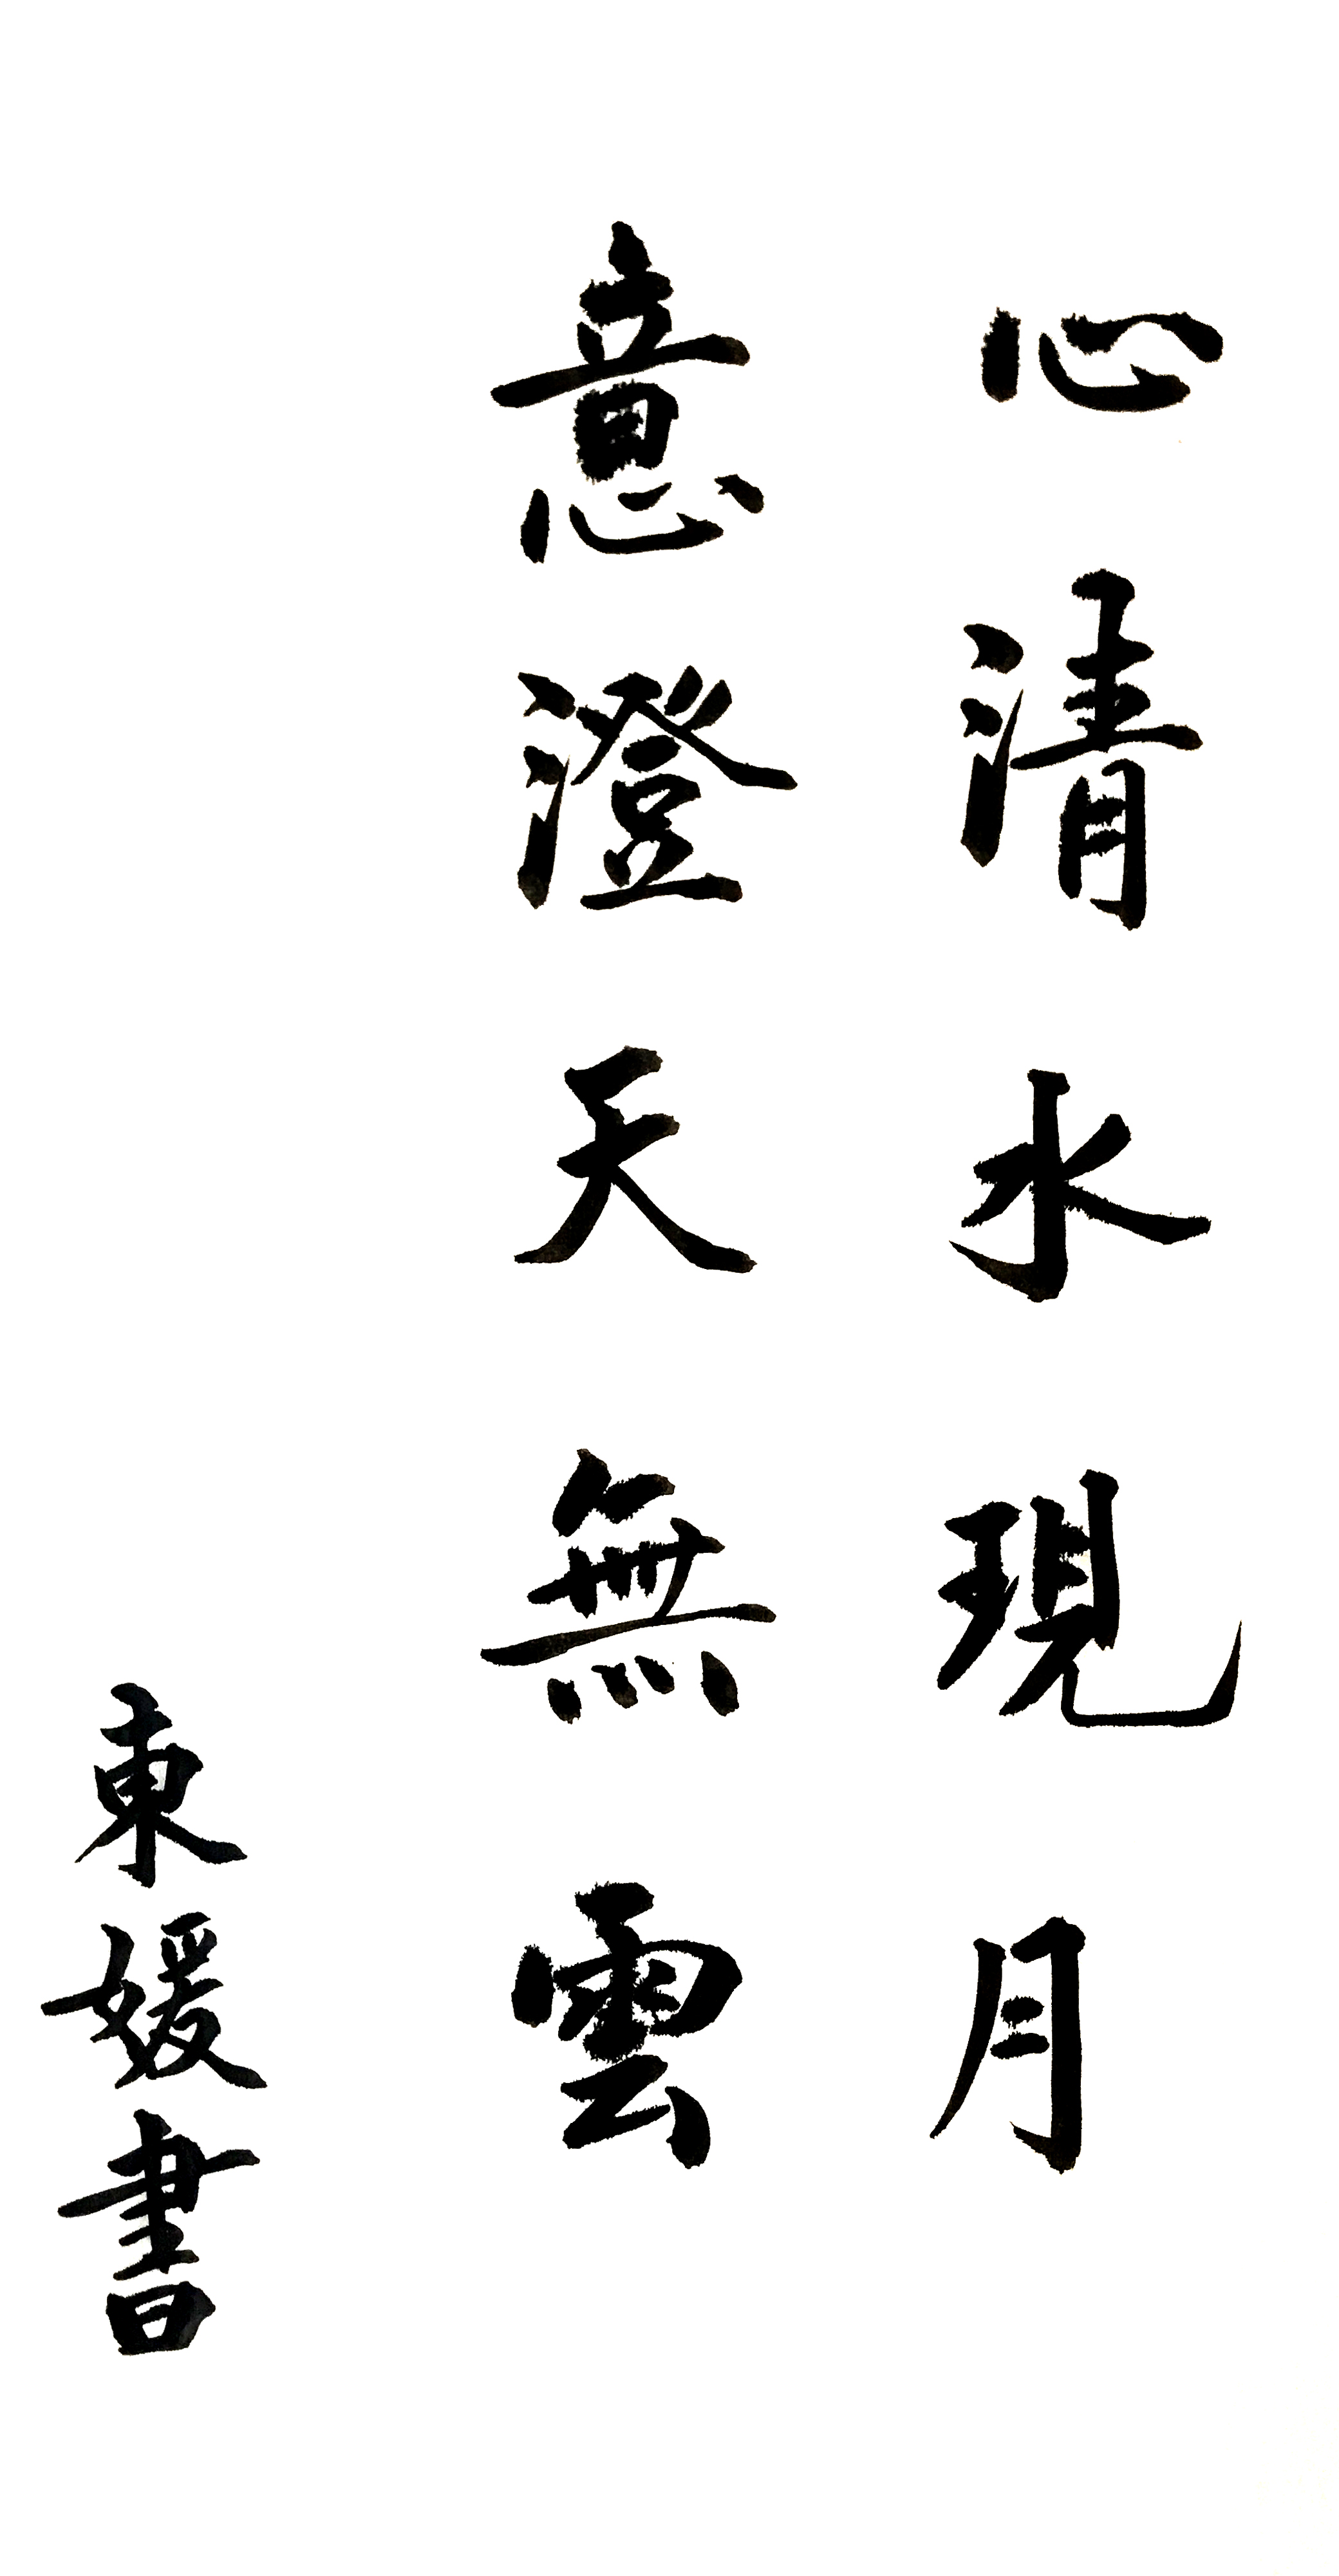 心清水現月
意澄天無雲
東媛書